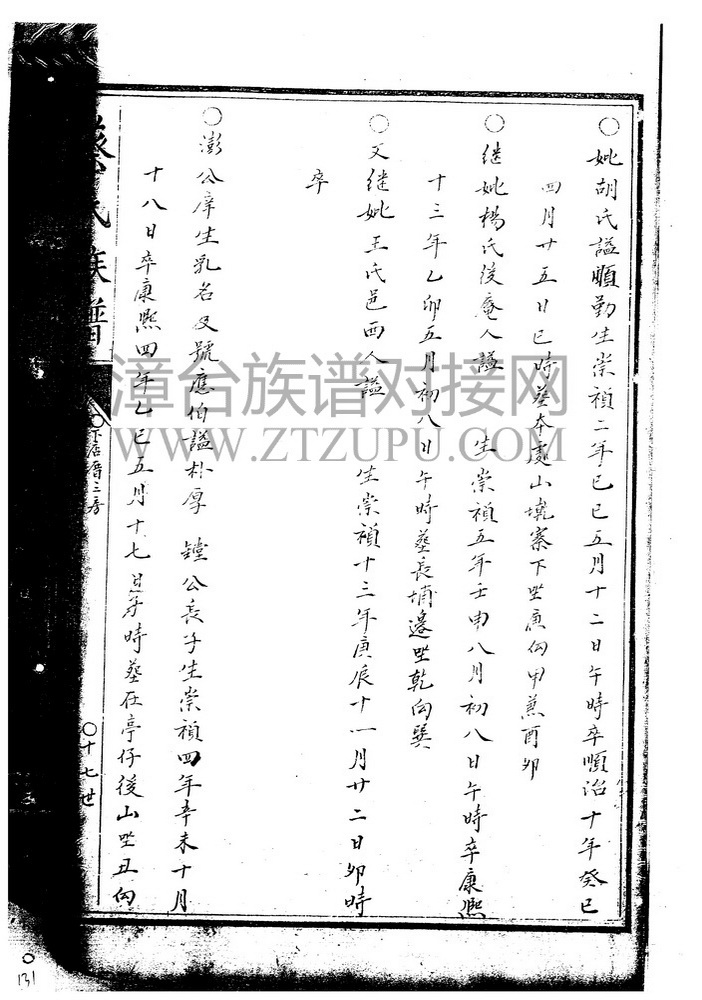 ○妣胡氏謚順勤生崇禎二年己巳五月十二日午時卒順治十年癸巳
四月廿五日巳時葬本處山塘寨下坐庚向甲兼酉卯
○继妣楊氏後庵人謚 生崇禎五年壬申八月初八日午時卒康熙
十三年乙卯五月初八日午時葬長埔邊坐乾向巽
○又继妣王氏邑西人謚 生崇禎十三年庚辰十一月廿二日卯時
卒
○澎公庠生乳名 及號應伯謚朴厚 鏜公長子生崇禎四年辛未十月
十八日卒康熙四年乙巳五月十七日 時葬在亭仔後山坐丑向
氏族譜
○下店厝三房
○十七世
漳台族谱对接网
WWW.ZTZUPU.COM
131